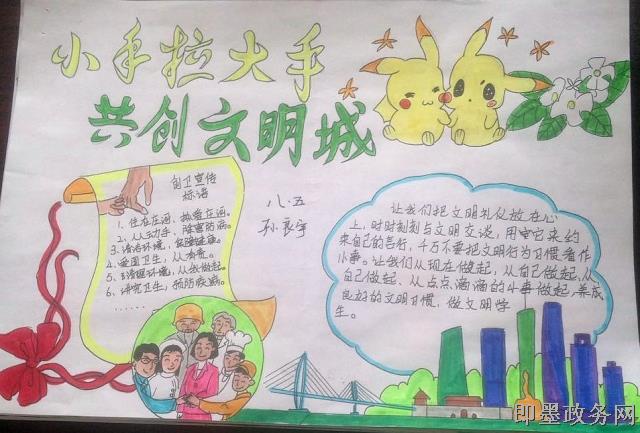 小手拉大手
共创文明城
创卫宣传
标语
八.五
孙良宇
1、住在庄河,热爱庄河。
2、人人动手,除害防病。
3、清洁环境,
4、爱国卫生,人人有责。
5、清洁环境,从我做起。
6、讲究卫生,预防疾病。
......
让我们把文明礼仪放在心
上,时时刻刻与文明交谈,用它来约
束自己的言行,千万不要把文明行为习惯看作
小事。让我们从现在做起,从自己做起,从
自己做起、从点点滴滴的小事做起,养成
良好的文明习惯,做文明学
生。
即墨政务网